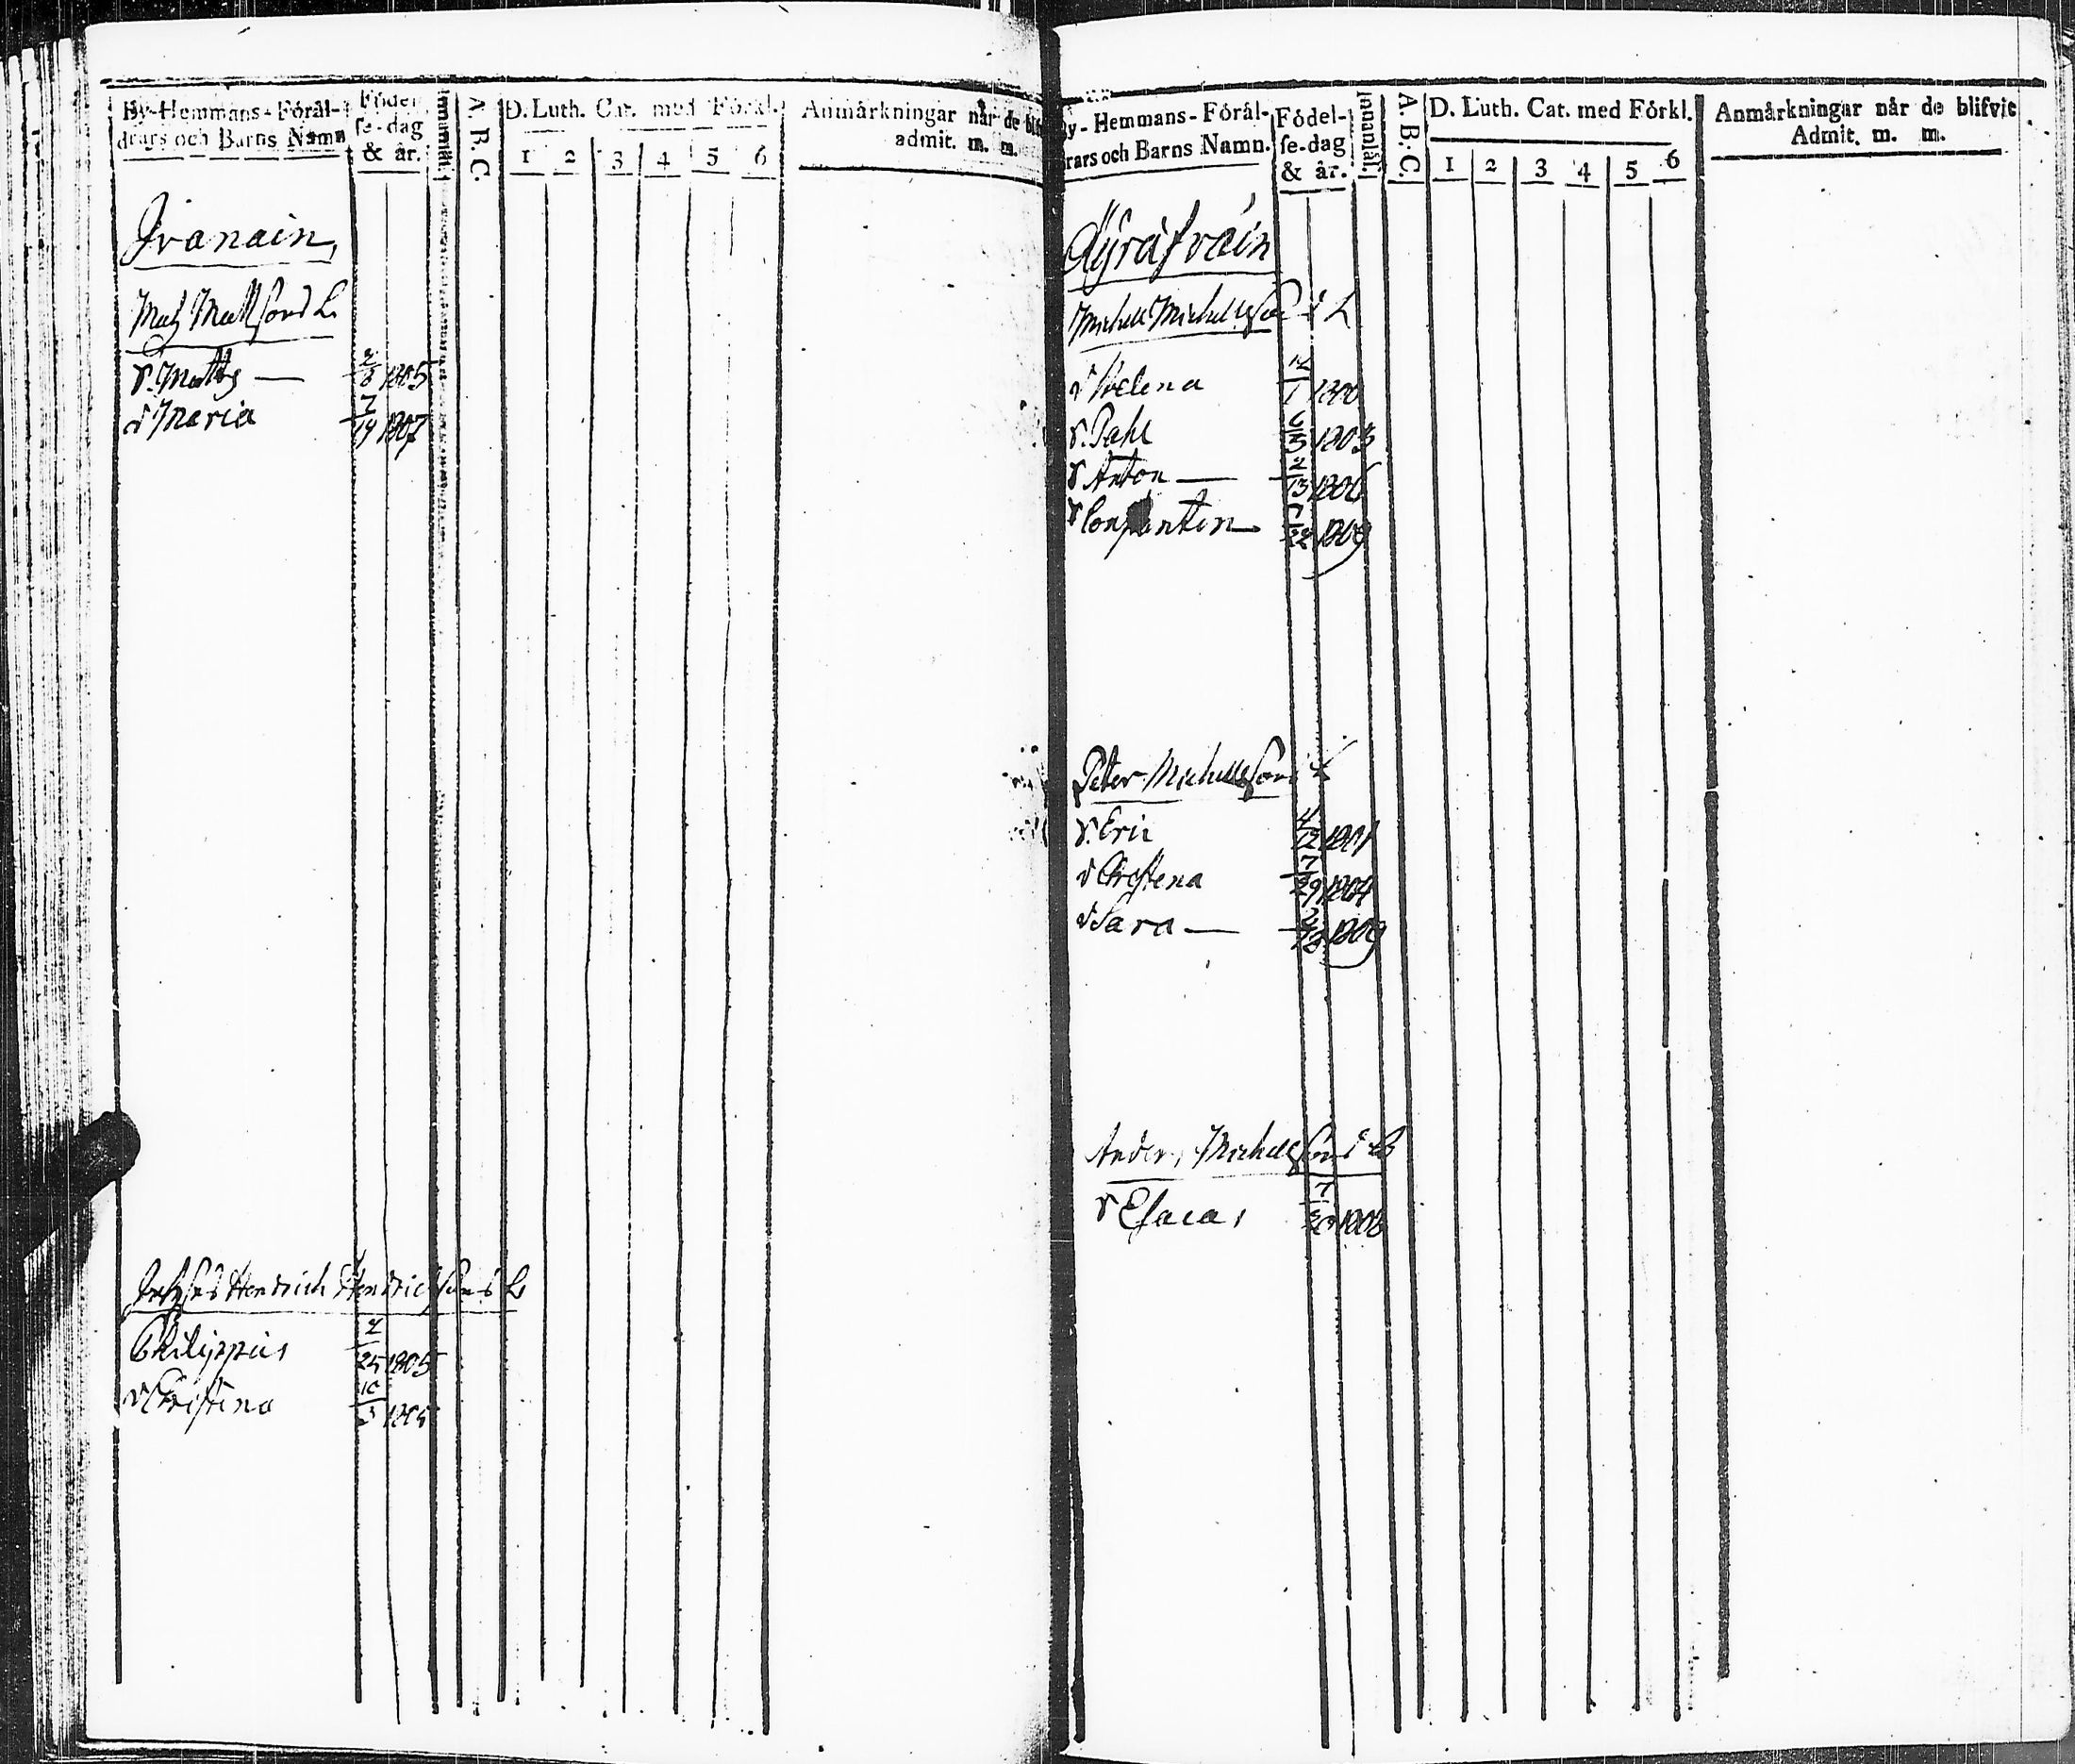 By-Hemmans-Föräl-
drars och Barns Namn
Födel-
se-dag
& år.
Innanläs.
A. B. C.
D. Luth. Cat. med Förkl.
1 2 3 4 5 6
Anmärkningar når de blif
admit. m. m.
Ivanain,
Mats Mattsons B.
S. Matts — 2/8 1805
D Maria 7/14 1807
Hendrich Hendrichsons B
Philippus 2/25 1805
D Christina 10/3 1805
By-Hemmans-Föräl-
rars och Barns Namn.
Födel-
se-dag
& år.
Innanläs.
A. B. C.
D. Luth. Cat. med Förkl.
1 2 3 4 5 6
Anmärkningar når de blifvit
Admit. m. m.
Michell Michellson
D Helena 1800
S. Pahl 1803
S Anton — 2/13 1806
S Constantin 1809
Peter Michellson
S. Eric 1801
D Christina 7/29 1804
D Sara — 1809
Anders Michellsons B
S Esaias 7/20 1808